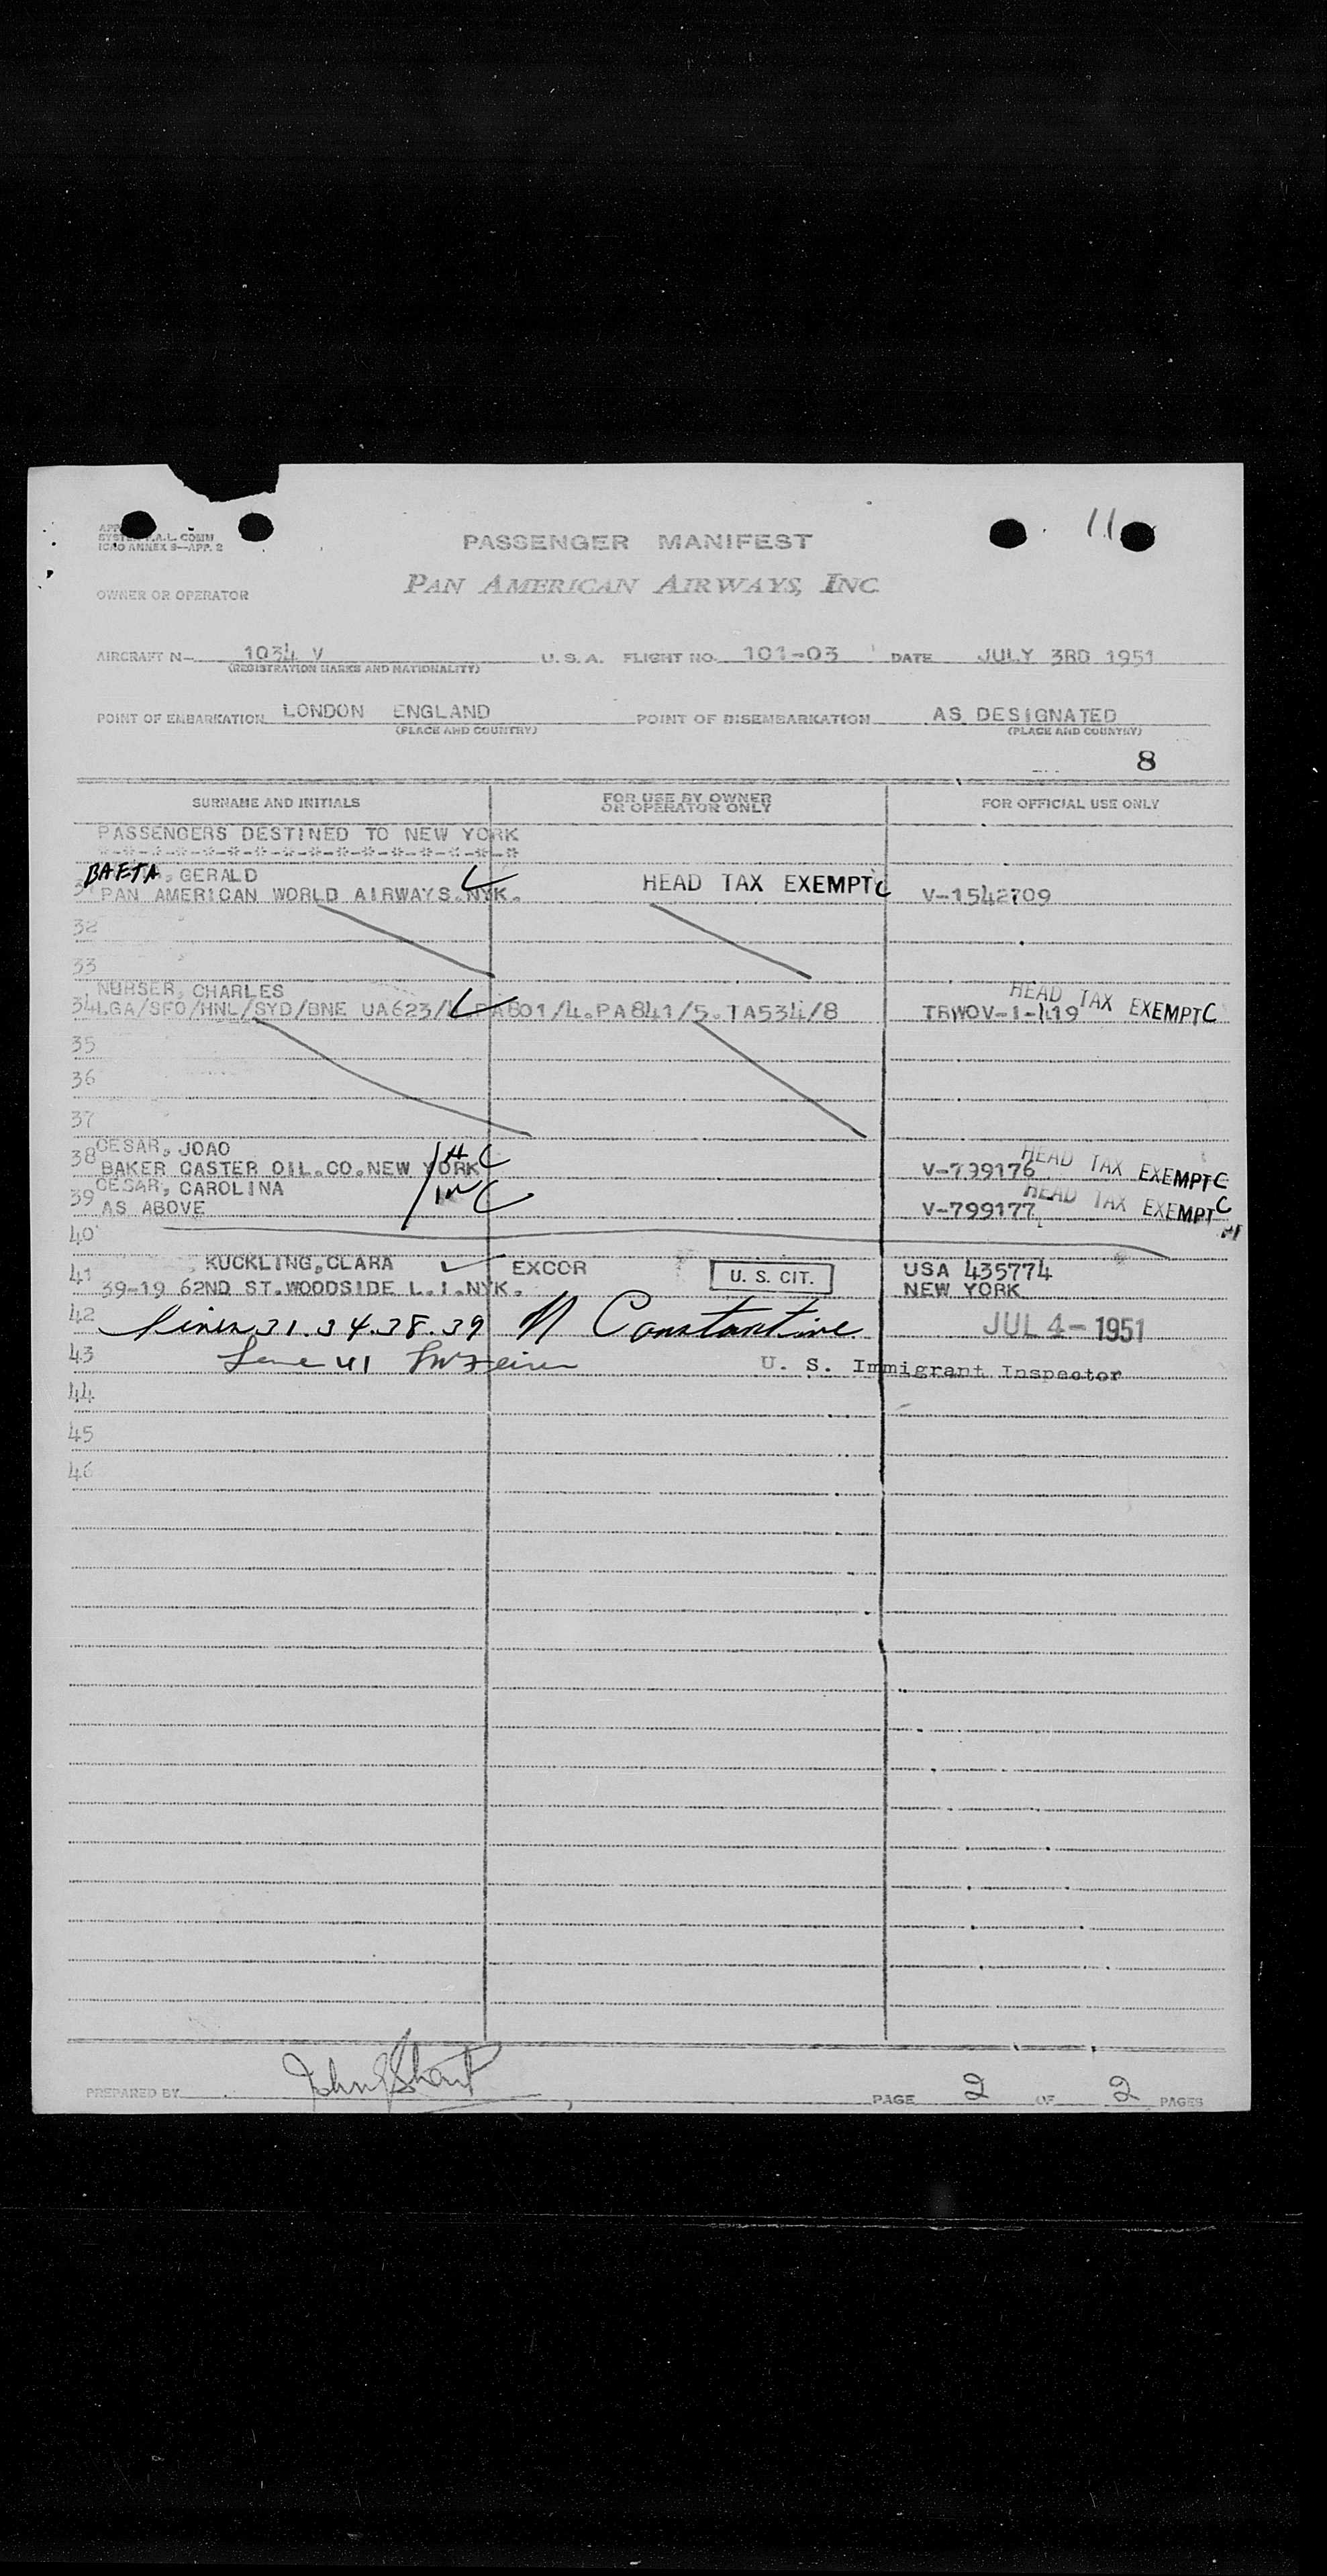 11
SYSTEM P.A.L. COMM
ICAO ANNEX 9—APP. 2
PASSENGER MANIFEST
PAN AMERICAN AIRWAYS, INC.
OWNER OR OPERATOR
AIRCRAFT N— 1034 V U. S. A. FLIGHT NO. 101-03 DATE JULY 3RD 1951
(REGISTRATION MARKS AND NATIONALITY)
POINT OF EMBARKATION LONDON ENGLAND POINT OF DISEMBARKATION AS DESIGNATED
(PLACE AND COUNTRY) (PLACE AND COUNTRY)
8
SURNAME AND INITIALS FOR USE BY OWNER OR OPERATOR ONLY FOR OFFICIAL USE ONLY
PASSENGERS DESTINED TO NEW YORK
*-*-*-*-*-*-*-*-*-*-*-*-*-*-*-*
BAFTA, GERALD
PAN AMERICAN WORLD AIRWAYS.NYK. HEAD TAX EXEMPT C V-1542709
32
33
NURSER, CHARLES
34 LGA/SFO/HNL/SYD/BNE UA623/ 801/4.PA841/5.TA534/8 TRWOV-1-419 HEAD TAX EXEMPT C
35
36
37
CESAR, JOAO
38 BAKER CASTER OIL.CO.NEW YORK C V-799176 HEAD TAX EXEMPT C
CESAR, CAROLINA
39 AS ABOVE C V-799177 HEAD TAX EXEMPT C
40
41 KUCKLING,CLARA EXCOR U. S. CIT. USA 435774
39-19 62ND ST.WOODSIDE L.I.NYK. NEW YORK
42 Lines 31.34.38.39 N Constantine JUL 4-1951
43 Line 41 U. S. Immigrant Inspector
44
45
46
PREPARED BY PAGE 2 OF 2 PAGES